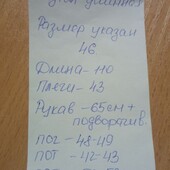 Размер указан
46
Длина - 110
Плечи - 43
Рукав - 65см +
подворотив.
ПОГ - 48-49
ПОТ - 42-43